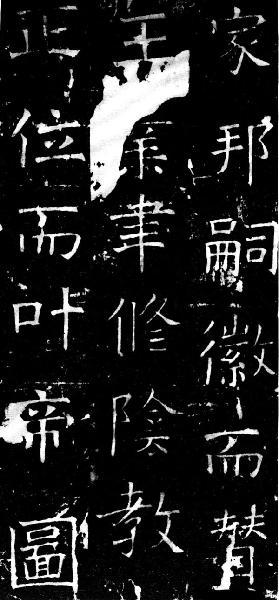 家邦嗣徽而賛
王業聿修陰教
正位而叶帝圖